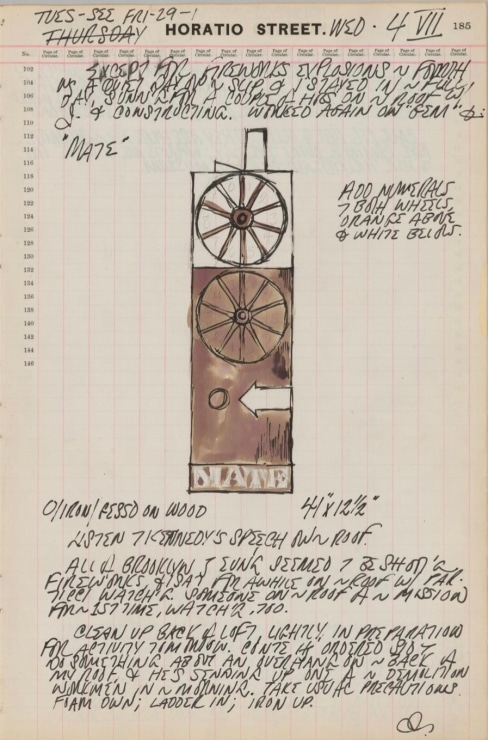 TUES - SEE FRI-29-1
THURSDAY HORATIO STREET. WED. 4 VII 185
No. Page of Circular. Page of Circular. Page of Circular. Page of Circular. Page of Circular. Page of Circular. Page of Circular. Page of Circular. Page of Circular. Page of Circular. Page of Circular. Page of Circular.
102 EXCEPT FOR FIREWORKS EXPLOSIONS ~ FOURTH
104 A QUIET DAY SLIP & I STAYED IN
106 DAY, SUNNING A COUPLE HRS ON ~ ROOF W/
108 J. & CONSTRUCTING. WORKED AGAIN ON "GEM" &
110
112
114 "MATE"
116
118
120 ADD NUMERALS
122 7 BOTH WHEELS,
124 ORANGE ABOVE
126 & WHITE BELOW.
128
130
132
134
136
138
140
142
144
146
MATE
O/IRON/GESSO ON WOOD 41" X 12 1/2"
LISTEN 7 KENNEDY'S SPEECH ON ~ ROOF
ALL OF BROOKLYN & SEEMED 7 BE SHOT'G
FIREWORKS, & I SAT FOR AWHILE ON ~ ROOF W/ PAR-
TICCI WATCH'G SOMEONE ON ~ ROOF OF ~ MISSION
FOR ~ 1ST TIME, WATCH'G, TOO.
CLEAN UP BACK OF LOFT, LIGHTLY, IN PREPARATION
FOR ACTIVITY TOMORROW. CONTE IS ORDERED 7
DO SOMETHING ABOUT AN OVERHANG ON ~ BACK OF
MY ROOF, & HE'S SENDING UP ONE OF ~ DEMOLITION
WORKMEN IN ~ MORNING. TAKE USUAL PRECAUTIONS.
FOAM DOWN; LADDER IN; IRON UP.